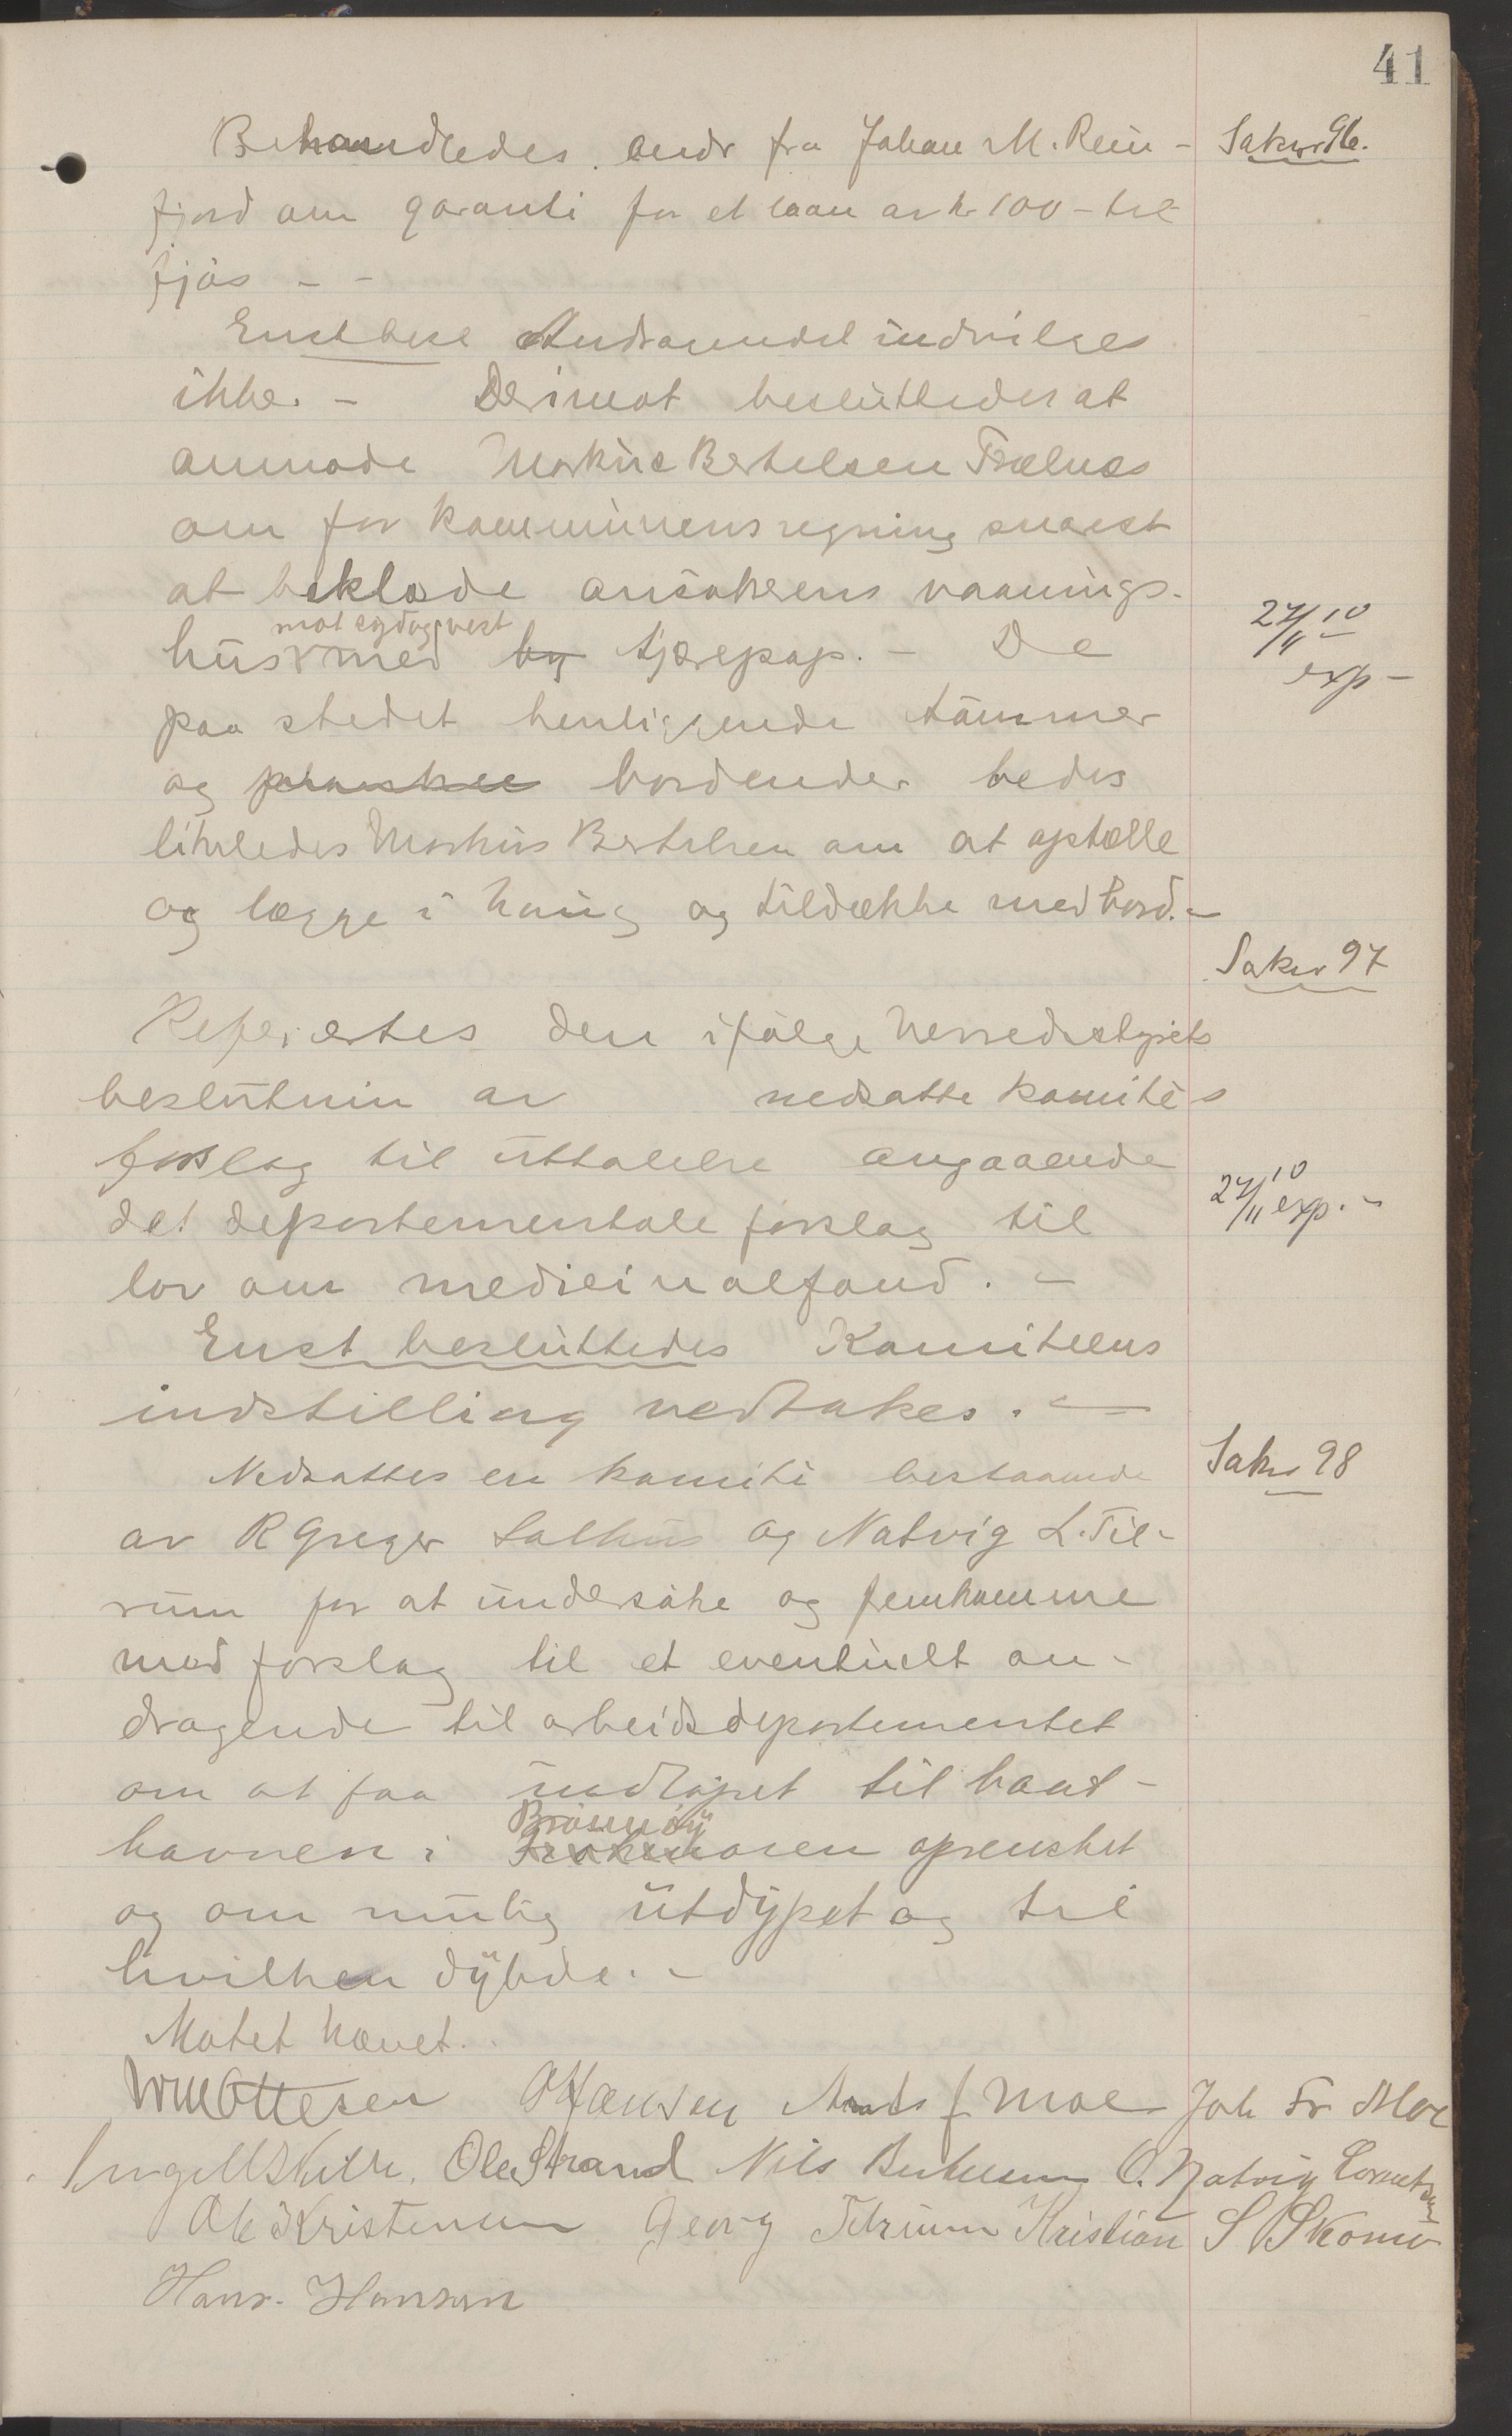 41
Behandledes andr fra Johan M. Rein- Saknr 96.
fjord om garanti for et laan av kr 100 - til
fjøs - -
Enst besl Andragendet indvilges
ikke. - Derimot besluttedes at
anmode Markus Bertelsen Trælnes
om for kommunens regning snarest
at beklæde ansøkerens vaanings-
mot syd og vest
hus med by tjærepap. - De 24/11 10
exp -
paa stedet henliggende tømmer
og planker bordender bedes
likeledes Markus Bertelsen om at optælle
og lægge i haug og tildække med bord. -
Saknr 97
Referertes den ifølge herredsstyrets
beslutnin av nedsatte komité s
forslag til uttalelse angaaende
24/11 10 exp. -
det departementale forslag til
lov om medicinalfond. -
Enst besluttedes Komiteens
indstilling vedtakes. -
Nedsattes en komité bestaaende Saknr 98
av R Greger Salhus og Natvig L. Til-
rum for at undersøke og fremkomme
med forslag til et eventuelt an-
dragende til arbeidsdepartementet
om at faa indløpet til baat-
Brønnøy
havnen i oprensket
og om mulig utdypet og til
hvilken dybde. -
Møtet hævet.
Wm Ottesen O Hansen Mads J Moe Joh Fr Moe
Ole Strand Nils O. Natvig Lorentsen
Ole Kristensen Georg Tilrum Kristian S Skomo
Hans. Hansen